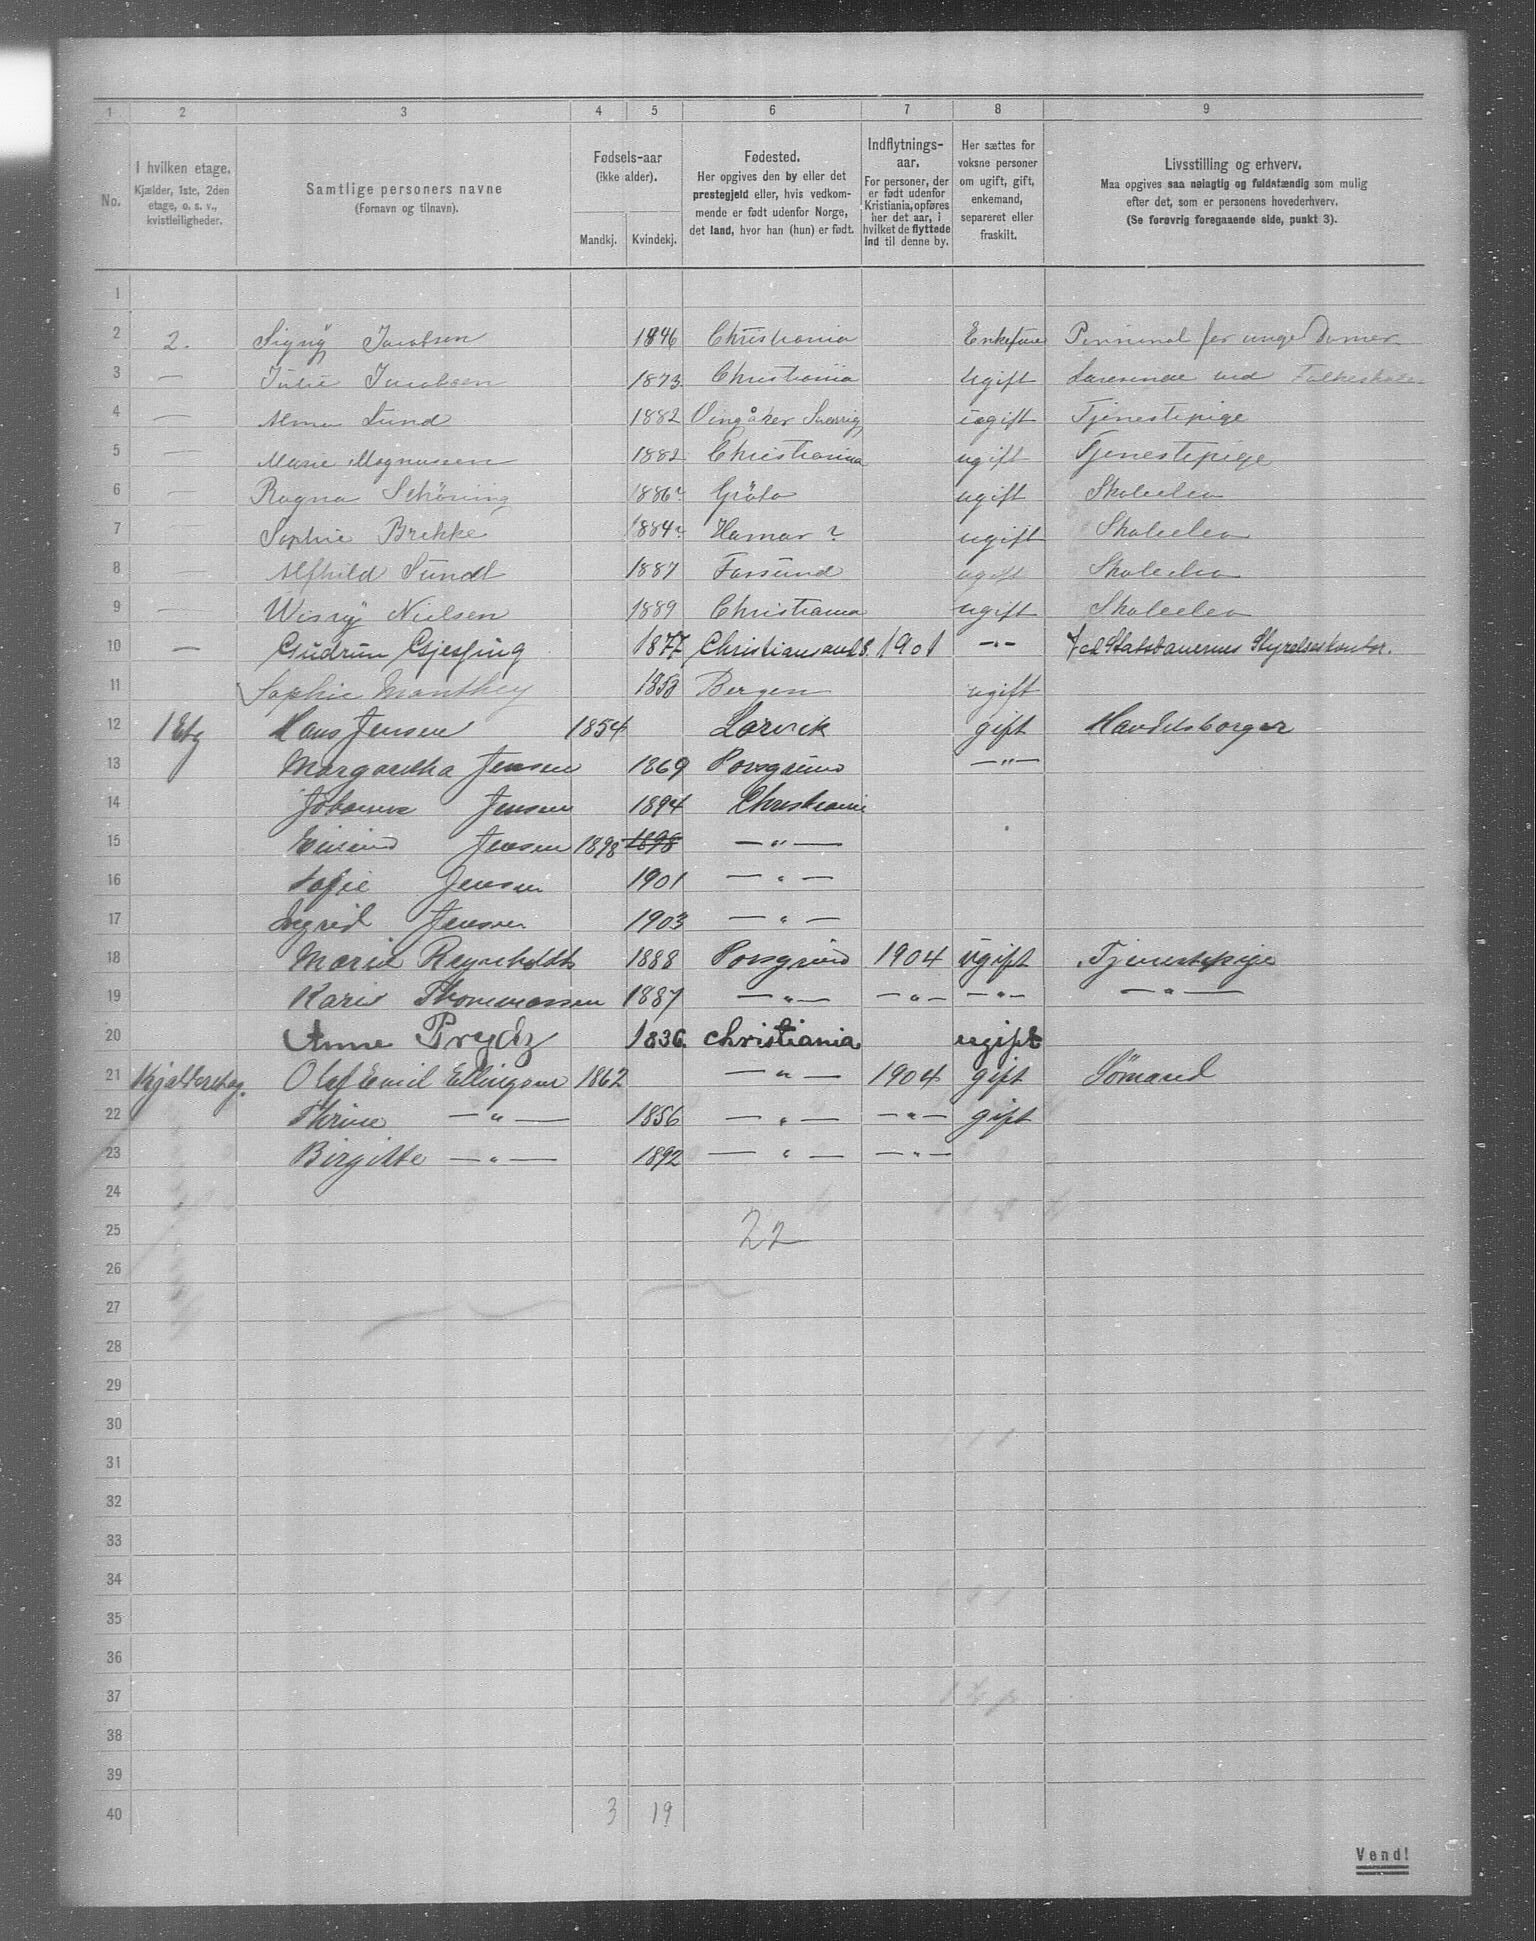 1 2 3 4 5 6 7 8 9
No.
I hvilken etage.
Kjælder, 1ste, 2den
etage, o. s. v.,
kvistleiligheder.
Samtlige personers navne
(Fornavn og tilnavn).
Fødsels-aar
(ikke alder).
Mandkj. Kvindekj.
Fødested.
Her opgives den by eller det
prestegjeld eller, hvis vedkom-
mende er født udenfor Norge,
det land, hvor han (hun) er født.
Indflytnings-
aar.
For personer, der
er født udenfor
Kristiania, opføres
her det aar, i
hvilket de flyttede
ind til denne by.
Her sættes for
voksne personer
om ugift, gift,
enkemand,
separeret eller
fraskilt.
Livsstilling og erhverv.
Maa opgives saa nøiagtig og fuldstændig som mulig
efter det, som er personens hovederhverv.
(Se forøvrig foregaaende side, punkt 3).
1
2 2. Signy Jacobsen 1846 Christiania Enkefrue for unge Damer
3 — Julie Jacobsen 1873 Christiania ugift Lærerinde ved Folkeskolen
4 — Alma Lund 1882 Vingåker Sverrig ugift Tjenestepige
5 — Marie Magnussen 1882 Christiania ugift Tjenestepige
6 — Ragna Schöning 1886? ugift Skoleelev
7 — Sophie Brekke 1884? Hamar? ugift Skoleelev
8 — Alfhild Sundt 1887 Farsund ugift Skoleelev
9 — Nielsen 1889 Christiania ugift Skoleelev
10 — Gudrun Gjessing 1877 Christiansand S. 1901 —"— Ved Statsbanernes Styrelseskontor.
11 Sophie Manthey 1858 Bergen ugift
12 1 Etg Hans Jensen 1854 Larvik gift Handelsborger
13 Margaretha Jensen 1869 Porsgrund —"—
14 Johanne Jensen 1894 Christiania
15 Jensen 1898 1898 —"—
16 Sofie Jensen 1901 —"—
17 Ingrid Jensen 1903 —"—
18 Marie Reynholdts 1888 Porsgrund 1904 ugift Tjenestepige
19 Karie Thommassen 1887 —"— —"— —"— —"—
20 Anne Prydz 1836. Christiania ugift
21 Kjælderetag. Olaf Emil Ellingsen 1862 —"— 1904 gift Sømand
22 Thrine —"— 1856 —"— —"— gift
23 Birgitte —"— 1892 —"— —"—
24
25 22
26
27
28
29
30
31
32
33
34
35
36
37
38
39
40 3 19
Vend!